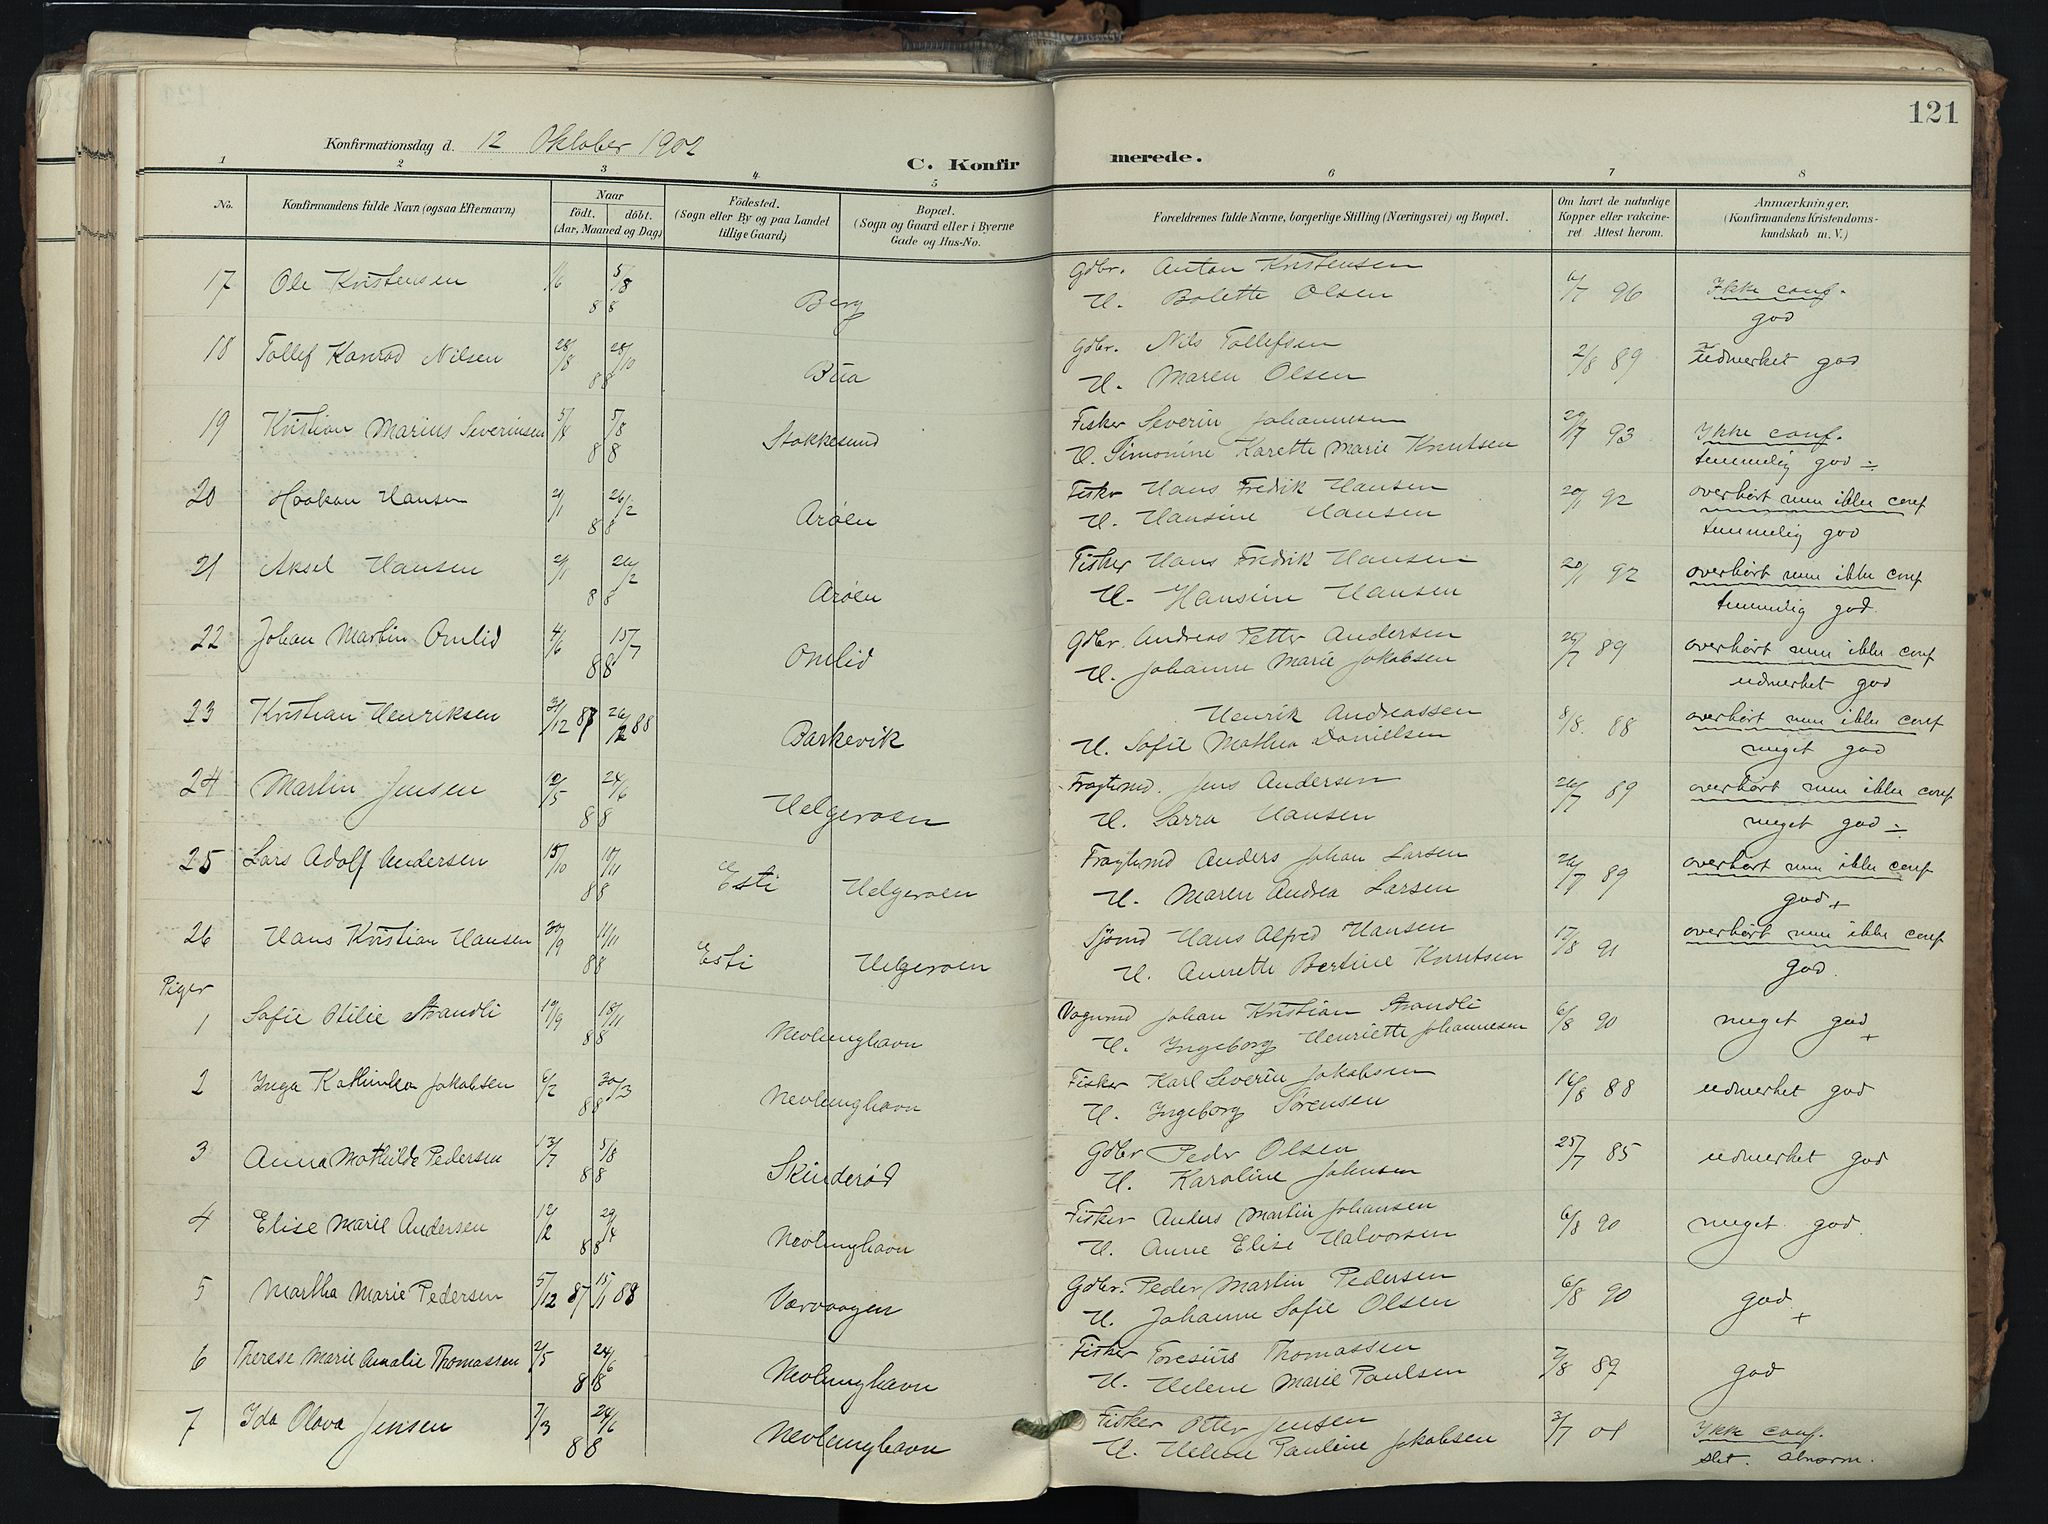 121
Konfirmationsdag d. 12 Oktober 1902
C. Konfir merede.
1 2 3 4 5 6 7 8
No.
Konfirmandens fulde Navn (ogsaa Efternavn)
Naar
födt. döbt.
(Aar, Maaned og Dag)
Födested.
(Sogn eller By og paa Landet
tillige Gaard)
Bopæl.
(Sogn og Gaard eller i Byerne
Gade og Hus-No.
Forældrenes fulde Navne, borgerlige Stilling (Næringsvei) og Bopæl.
Om havt de naturlige
Kopper eller vakcine-
ret Attest herom.
Anmærkninger.
(Konfirmandens Kristendoms-
kundskab m. V.)
17 Ole Kristensen 1/6 5/8 88 Berg Gdbr. Anton Kristensen 6/7 96 Ikke conf.
H. Bolette Olsen god
18 Tollef Konrad Nilsen 28/8 28/10 88 Bua Gdbr. Nils Tollefsen 2/8 89 udmerket god
H. Maren Olsen
19 Kristian Marius Severinsen 5/4 5/8 88 Stokkesund Fisker Severin Johannesen 29/7 93 Ikke conf.
H. Simonine Karette Marie Knutsen temmelig god ÷
20 Haakon Hansen 21/1 26/2 88 Arøen Fisker Hans Fredrik Hansen 20/1 92 overhørt men ikke conf
H. Hansine Hansen temmelig god
21 Aksel Hansen 21/1 26/2 88 Arøen Fisker Hans Fredrik Hansen 20/1 92 overhørt men ikke conf
H. Hansine Hansen temmelig god.
22 Johan Martin Omlid 4/6 15/7 88 Omlid Gdbr. Andreas Petter Andersen 25/7 89 overhørt men ikke conf
H. Johanne Marie Jakobsen udmerket god
23 Kristian Henriksen 31/12 87 26/2 88 Barkevik Henrik Andreassen 8/8. 88 overhørt men ikke conf
H. Sofie Mathea Danielsen meget god
24 Martin Jensen 10/5 24/6 88 Helgeroen Fragtmd. Jens Andersen 26/7 89 overhørt men ikke conf
H. Sarra Hansen meget god ÷
25 Lars Adolf Andersen 15/10 10/11 88 Esti Helgeroen Fragtmd Anders Johan Larsen 26/7 89 overhørt men ikke conf
H. Maren Andrea Larsen god +
26 Hans Kristian Hansen 30/9 11/11 88 Esti Helgeroen Sjømd Hans Alfred Hansen 17/8 91 overhørt men ikke conf
H. Annette Bertine Knutsen god.
Piger
1 Sofie Otilie Strandli 19/9 18/11 88 Nevlunghavn Vognmd Johan Kristian Strandli 6/8 90 meget god +
H. Ingeborg Henriette Johannesen
2 Inga Kathinka Jakobsen 6/2 30/3 88 Nevlunghavn Fisker Karl Severin Jakobsen 16/8 88 udmerket god
H. Ingeborg Sørensen
3 Anna Mathilde Pedersen 13/7 5/8 88 Skinderød Gdbr Peder Olsen 25/7 85 udmerket god
H. Karoline Johnsen
4 Elise Marie Andersen 12/2 29/4 88 Nevlunghavn Fisker Anders Martin Johansen 6/8 90 meget god
H. Anne Elise Halvorsen
5 Martha Marie Pedersen 5/12 87 15/1 88 Værvaagen Gdbr. Peder Martin Pedersen 6/8 90 god +
H. Johanne Sofie Olsen
6 Therese Marie Amalie Thomassen 2/5 24/6 88 Nevlunghavn Fisker Toresius Thomassen 7/8 89 god
H. Helene Marie Paulsen
7 Ida Olava Jensen 7/3 24/6 88 Nevlunghavn Fisker Otter Jensen 3/7 01 Ikke conf.
H. Helene Pauline Jakobsen slet. abnorm.